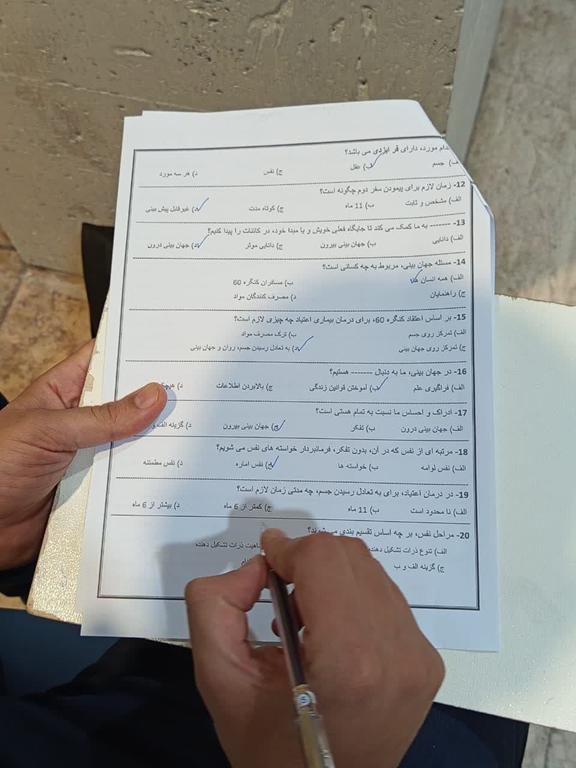 دام مورد، دارای فر ایزدی می باشد؟
ف) جسم ب) عقل ج) نفس د) هر سه مورد
12- زمان لازم برای پیمودن سفر دوم چگونه است؟
الف) مشخص و ثابت ب) 11 ماه ج) کوتاه مدت د) غیرقابل پیش بینی
13- ------- به ما کمک می کند تا جایگاه فعلی خویش و یا مبدا خود، در کائنات را پیدا کنیم؟
الف) دانایی ب) جهان بینی بیرون ج) دانایی موثر د) جهان بینی درون
14- مسئله جهان بینی، مربوط به چه کسانی است؟
الف) همه انسان ها ب) مسافران کنگره 60
ج) راهنمایان د) مصرف کنندگان مواد
15- بر اساس اعتقاد کنگره 60، برای درمان بیماری اعتیاد چه چیزی لازم است؟
الف) تمرکز روی جسم ب) ترک مصرف مواد
ج) تمرکز روی جهان بینی د) به تعادل رسیدن جسم، روان و جهان بینی
16- در جهان بینی، ما به دنبال ------- هستیم؟
الف) فراگیری علم ب) آموختن قوانین زندگی ج) بالابردن اطلاعات د)
17- ادراک و احساس ما نسبت به تمام هستی است؟
الف) جهان بینی درون ب) تفکر ج) جهان بینی بیرون د) گزینه الف و
18- مرتبه ای از نفس که در آن، بدون تفکر، فرمانبردار خواسته های نفس می شویم؟
الف) نفس لوامه ب) خواسته ها ج) نفس اماره د) نفس مطمئنه
19- در درمان اعتیاد، برای به تعادل رسیدن جسم، چه مدتی زمان لازم است؟
الف) نا محدود است ب) 11 ماه ج) کمتر از 6 ماه د) بیشتر از 6 ماه
20- مراحل نفس، بر چه اساس تقسیم بندی می شوند؟
الف) تنوع ذرات تشکیل دهنده ذرات تشکیل دهنده
ج) گزینه الف و ب